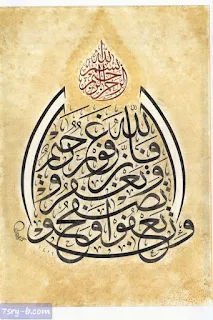 بسم الله الرحمن الرحيم
وإن تعفوا وتصفحوا وتغفروا فإن الله غفور رحيم
7sry-b.com